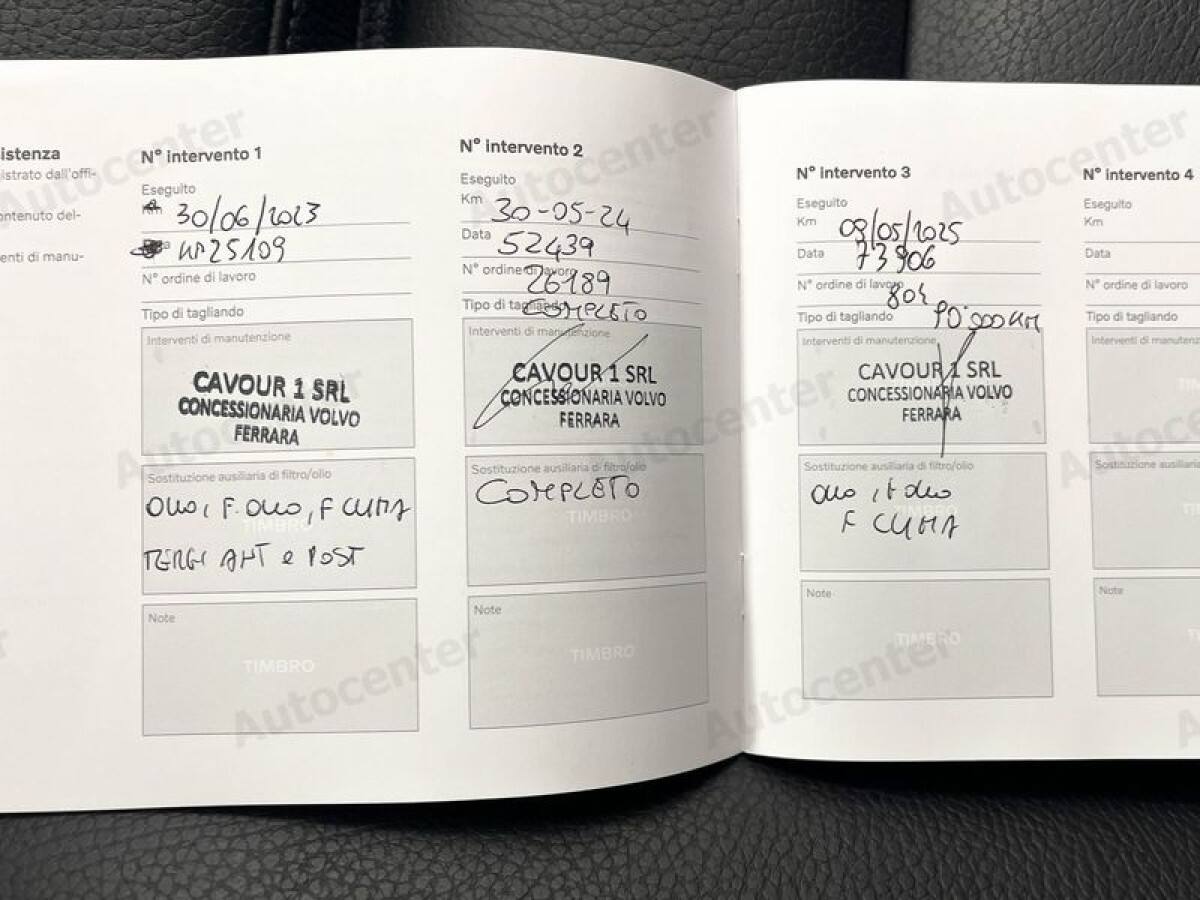 istenza
istrato dall'offi-
ontenuto del-
enti di manu-
N° intervento 1
Eseguito
Km 30/06/2023
KM 25109
N° ordine di lavoro
Tipo di tagliando
Interventi di manutenzione
CAVOUR 1 SRL
CONCESSIONARIA VOLVO
FERRARA
Sostituzione ausiliaria di filtro/olio
OLIO, F. OLIO, F CLIMA
TIMBRO
TERGI ANT e POST
Note
TIMBRO
N° intervento 2
Eseguito
Km 30-05-24
Data 52439
N° ordine di lavoro
26189
Tipo di tagliando COMPLETO
Interventi di manutenzione
CAVOUR 1 SRL
CONCESSIONARIA VOLVO
FERRARA
Sostituzione ausiliaria di filtro/olio
COMPLETO
TIMBRO
Note
TIMBRO
N° intervento 3
Eseguito
Km 09/05/2025
Data 73906
N° ordine di lavoro
Tipo di tagliando 90'000 KM
Interventi di manutenzione
CAVOUR 1 SRL
CONCESSIONARIA VOLVO
FERRARA
Sostituzione ausiliaria di filtro/olio
OLIO, F OLIO
F CLIMA
Note
TIMBRO
N° intervento 4
Eseguito
Km
Data
N° ordine di lavoro
Tipo di tagliando
Interventi di manutenz
Sostituzione ausiliaria
Note
Autocenter
Autocenter
Autocenter
Autocenter
Autocenter
Autocenter
Autocenter